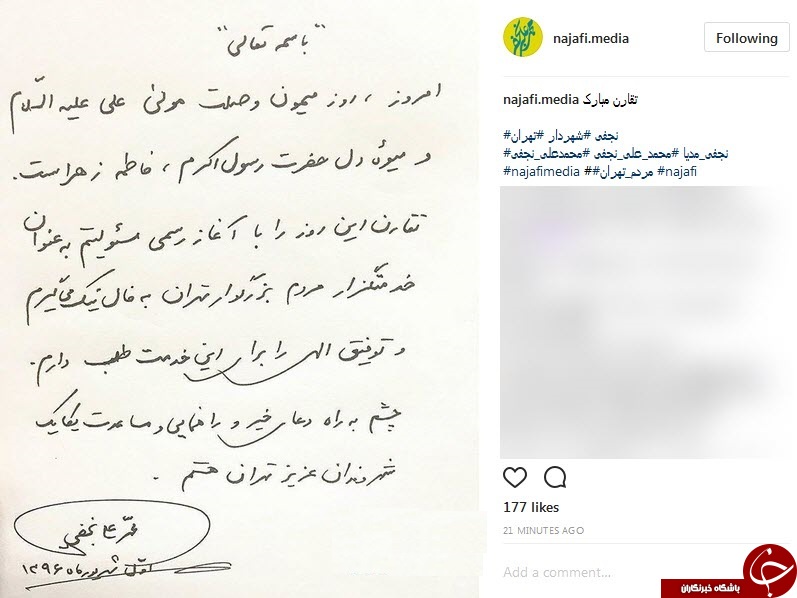 "باسمه تعالی"
امروز ، روز میمون وصلت مولیٰ علی علیه السّلام
و میوهٔ دل حضرت رسول اکرم ، فاطمه زهراست.
تقارن این روز را با آغاز رسمی مسئولیتم به عنوان
خدمتگزار مردم بزرگوار تهران به فال نیک می‌گیرم
و توفیق الهی را برای این خدمت طلب دارم.
چشم به راه دعای خیر و راهنمایی و مساعدت یکایک
شهروندان عزیز تهران هستم .
محمّد علی نجفی
اوّل شهریور ماه ۱۳۹۶
najafi.media
Following
najafi.media تقارن مبارک
#نجفی #شهردار #تهران
#نجفی_مدیا #محمد_علی_نجفی #محمدعلی_نجفی
#najafimedia ##مردم_تهران #najafi
177 likes
21 MINUTES AGO
Add a comment...
باشگاه خبرنگاران